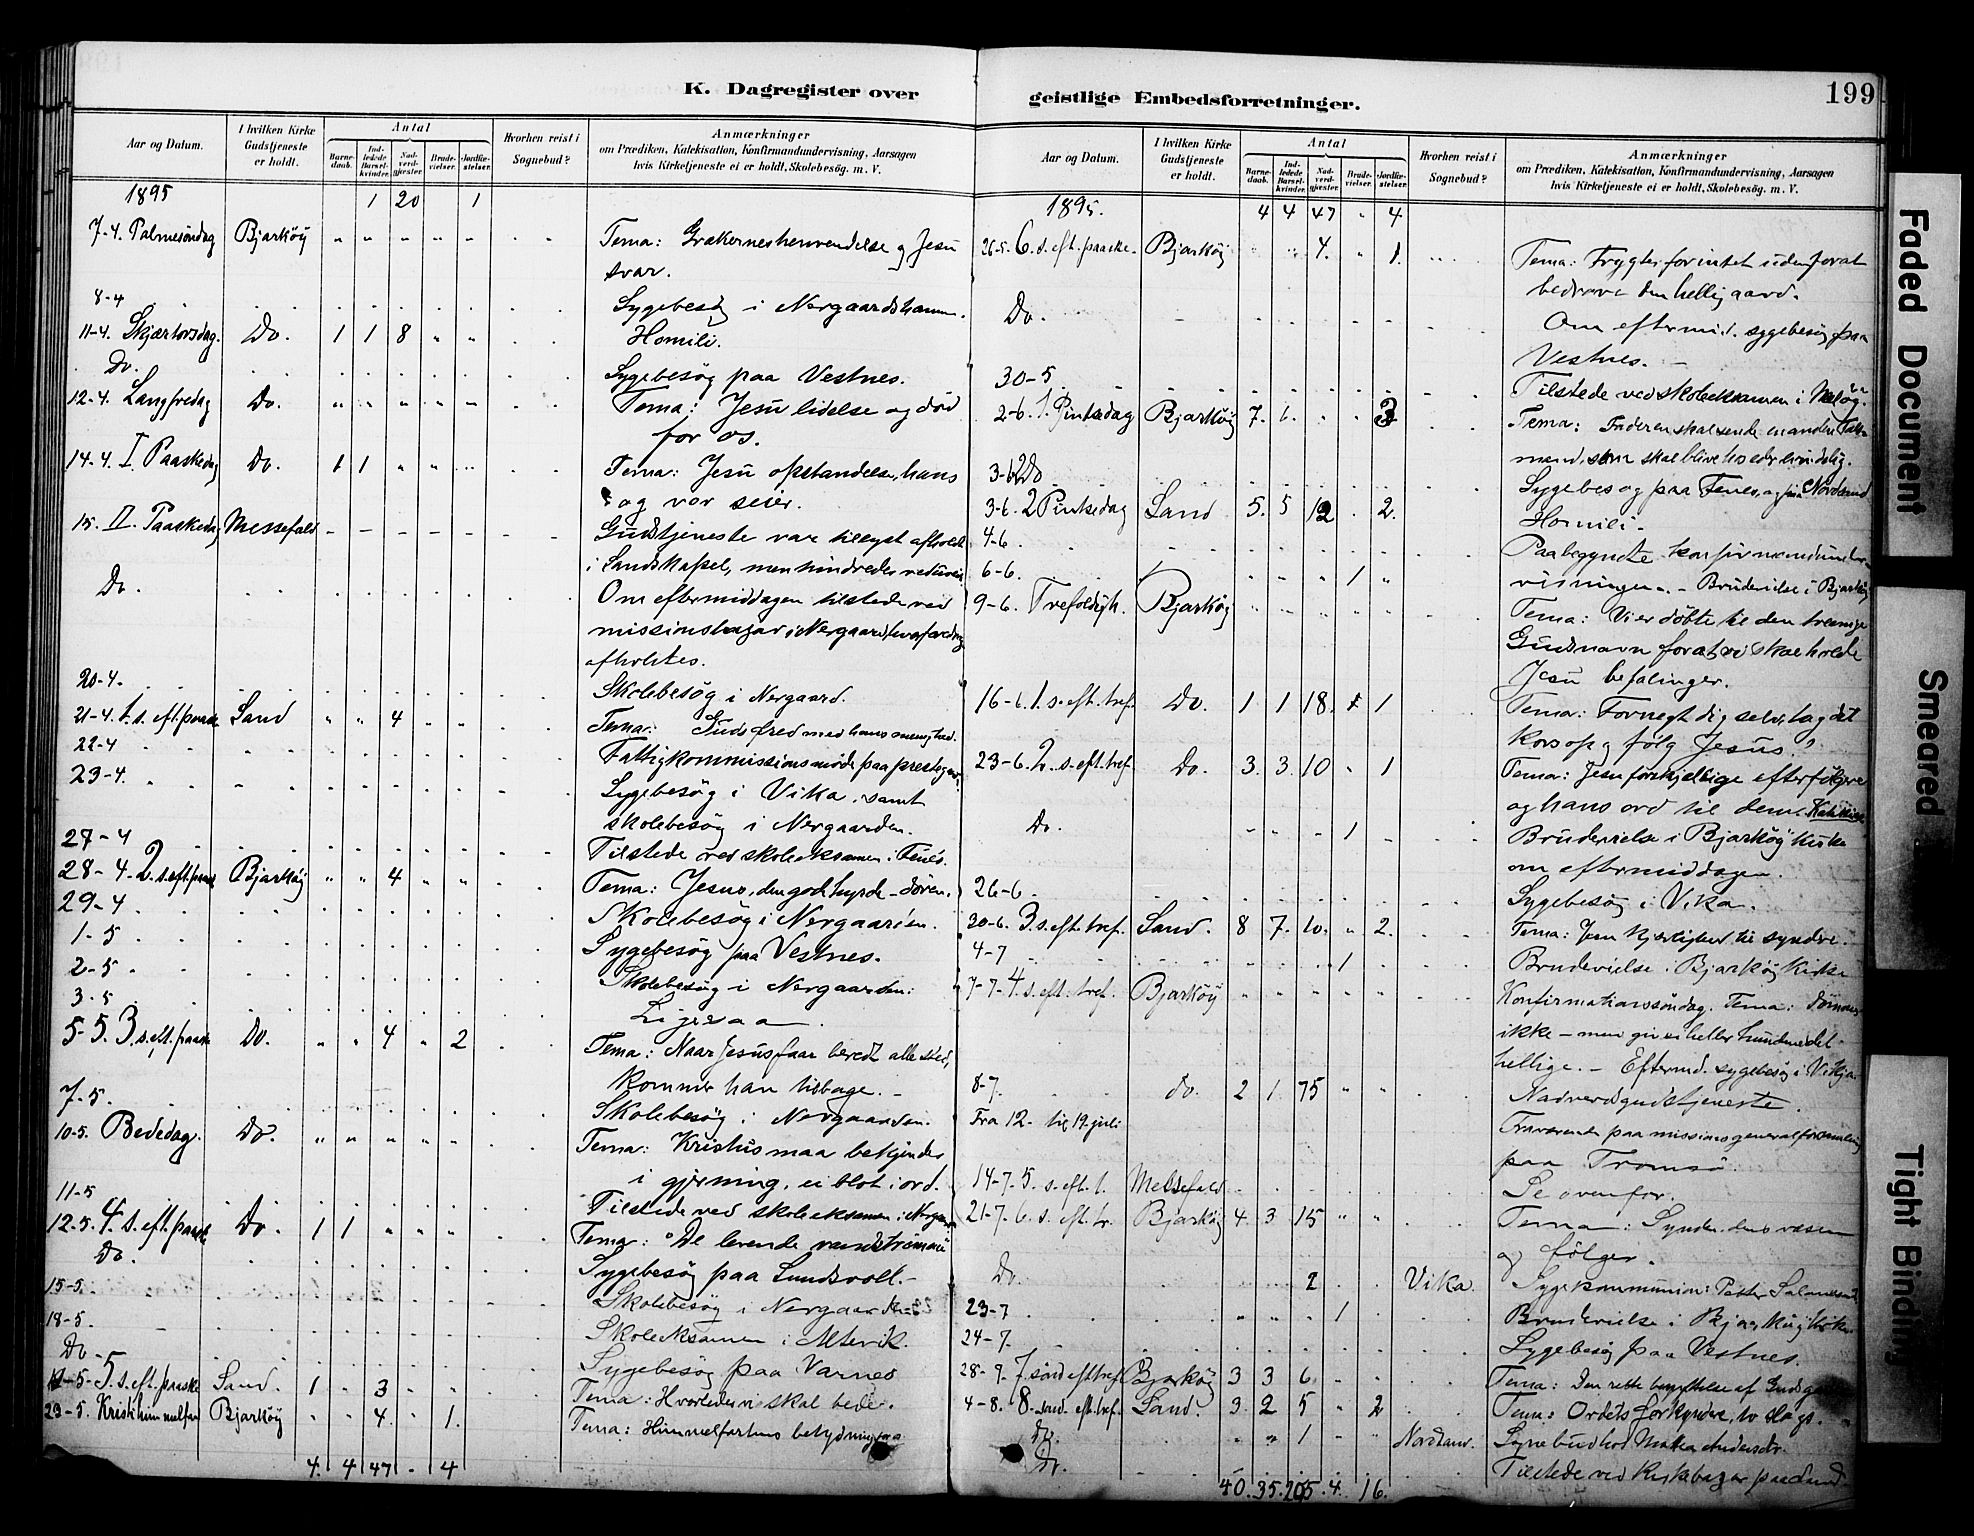 199
K. Dagregister over
Aar og Datum.
I hvilken Kirke Gudstjeneste er holdt.
Antal
Barnedaab.
Indledede Barselkvinder.
Nadverdgjester
Brudevielser.
Jordfæstelser.
Hvorhen reist i Sognebud?
Anmærkninger
om Prædiken, Katekisation, Konfirmandundervisning, Aarsagen
hvis Kirketjeneste ei er holdt, Skolebesög. m. V.
1895 1 20 1
7-4. Palmesöndag Bjarköy " " " " " Tema: Grækernes henvendelse og Jesu
svar.
8-4 Sygebesög i Nergaardshamn.
11-4. Skjærtorsdag. Do. 1 1 8 " " Homili.
Do. Sygebesög paa Vestnes.
12-4. Langfredag Do. " " " " " Tema: Jesu lidelse og död
for os.
14-4. I Paaskedag Do. 1 1 " " " Tema: Jesu opstandelse, hans
og vor seier.
15. II. Paaskedag Messefald - - - - - Gudstjeneste var tillyst afholdt
i Sandskapel, men hindredes
Do. Om eftermiddagen tilstede ved
missionsbazar i Nergaard
afholdtes.
20-4. Skolebesög i Nergaard.
21-4. 1. s. eft. paaske Sand " " 4 " " Tema: Guds fred med hans menighed.
22-4 Fattigkommissionsmöde paa prestegaard
23-4. Sygebesög i Vika, samt
skolebesög i Nergaarden.
27-4 Tilstede ved skoleeksamen i Fenes.
28-4. 2. s. eft. paaske Bjarköy " " 4 " " Tema: Jesus, den gode hyrde - dören.
29-4 Skolebesög i Nergaarden.
1-5 Sygebesög paa Vestnes.
2-5 Skolebesög i Nergaarden.
3-5 Ligesaa.
5-5. 3. s. eft. paaske Do. " " 4 " 2 Tema: Naar Jesus faar beredt alle sted,
kommer han tilbage.-
7-5. Skolebesög i Nergaarden.
10-5. Bededag. Do. " " " " " Tema: Kristus maa bekjendes
i gjerning, ei blot i ord.
11-5 Tilstede ved skoleeksamen i Nergaard
12-5. 4. s. eft. paaske Do. 1 1 " " " Tema: "De levende vandströmme"
Do. Sygebesög paa Lundsvoll.-
15-5. Skolebesög i Nergaarden
18-5. Skoleeksamen i Altevik.
Do. Sygebesög paa Varnes
5. s. eft. paaske Sand. 1 " 3 " " Tema: Hvorledes vi skal bede.
23-5. Kristi himmelfart Bjarköy " " 4. " 1. Tema: Himmelfartens betydning for os
4. 4 47 - 4
geistlige Embedsforretninger.
Aar og Datum.
I hvilken Kirke Gudstjeneste er holdt.
Antal
Barnedaab.
Indledede Barselkvinder.
Nadverdgjester
Brudevielser.
Jordfæstelser.
Hvorhen reist i Sognebud?
Anmærkninger
om Prædiken, Katekisation, Konfirmandundervisning, Aarsagen
hvis Kirketjeneste ei er holdt, Skolebesög. m. V.
1895. 4 4 47 " 4
26-5. 6. s. eft. paaske. Bjarköy " " 4. " 1. Tema: Frygter for intet uden for at
bedröve den hellig aand.
Do. Om eftermid. sygebesög paa
Vestnes.-
30-5 Tilstede ved skoleeksamen i
2-6. 1. Pintsedag Bjarköy 7. 6. 3 Tema: Faderen skal sende en anden Talsmand,
som skal blive hos eder
3-6 Do Sygebesög paa Fenes, og paa Nordsand
3-6. 2 Pintsedag Sand 5. 5 12 2. Homili.
4-6 Paabegyndte konfirmandundervisningen.
6-6. " " " 1 " - Brudevielse i Bjarköy
9-6. Trefoldigh. Bjarköy Tema: Vi er döbte til den treenige
Guds navn for at vi skal holde
Jesu befalinger.
16-6. 1. s. eft. tref. Do. 1 1 18. 1 Tema: Fornegt dig selv, tag dit
kors op og fölg Jesus!
23-6. 2. s. eft. tref. Do. 3. 3. 10 " 1 Tema: Jesu forskjellige efterfölgere
og hans ord til dem.
Do. " " " 1 " Brudevielse i Bjarköy kirke
om eftermiddagen.
26-6. Sygebesög i Vika.
30-6. 3. s. eft. tref. Sand. 8 7. 10. " 2. Tema: Jesu kjærlighed til syndere.
4-7 1 Brudevielse i Bjarköy kirke
7-7. 4. s. eft. tref. Bjarköy " " " " " Konfirmationssöndag. Tema: dömmer
ikke - men giv ei heller hundene det
hellige. - Eftermid. sygebesög i
8-7. do. 2 1. 75 " " Nadverdgudstjeneste.
Fra 12. til 19. juli Fraværende paa missionsgeneralforsamling
paa Tromsö
14-7. 5. s. eft. t. Messefald Se ovenfor.
21-7. 6. s. eft. tr. Bjarköy 4. 3 15 " " Tema: Synden, dens væsen
og fölger.
Do. 2 Vika. Sygekommunion:
23-7 " " " 1 Brudevielse i Bjarköy kirke
24-7. Sygebesög paa Vestnes.
28-7. 7. sönd eft tref Bjarköy 3 3 6 " " Tema: Den rette
4-8. 8. sönd. eft. tref. Sand. 3. 2 5 " 2 Tema: Ordets forkyndere, to slags.
Do. " 1 Nordsand.
Do. Tilstede ved
40. 35. 205. 4. 16.
Faded Document
Smeared
Tight Binding